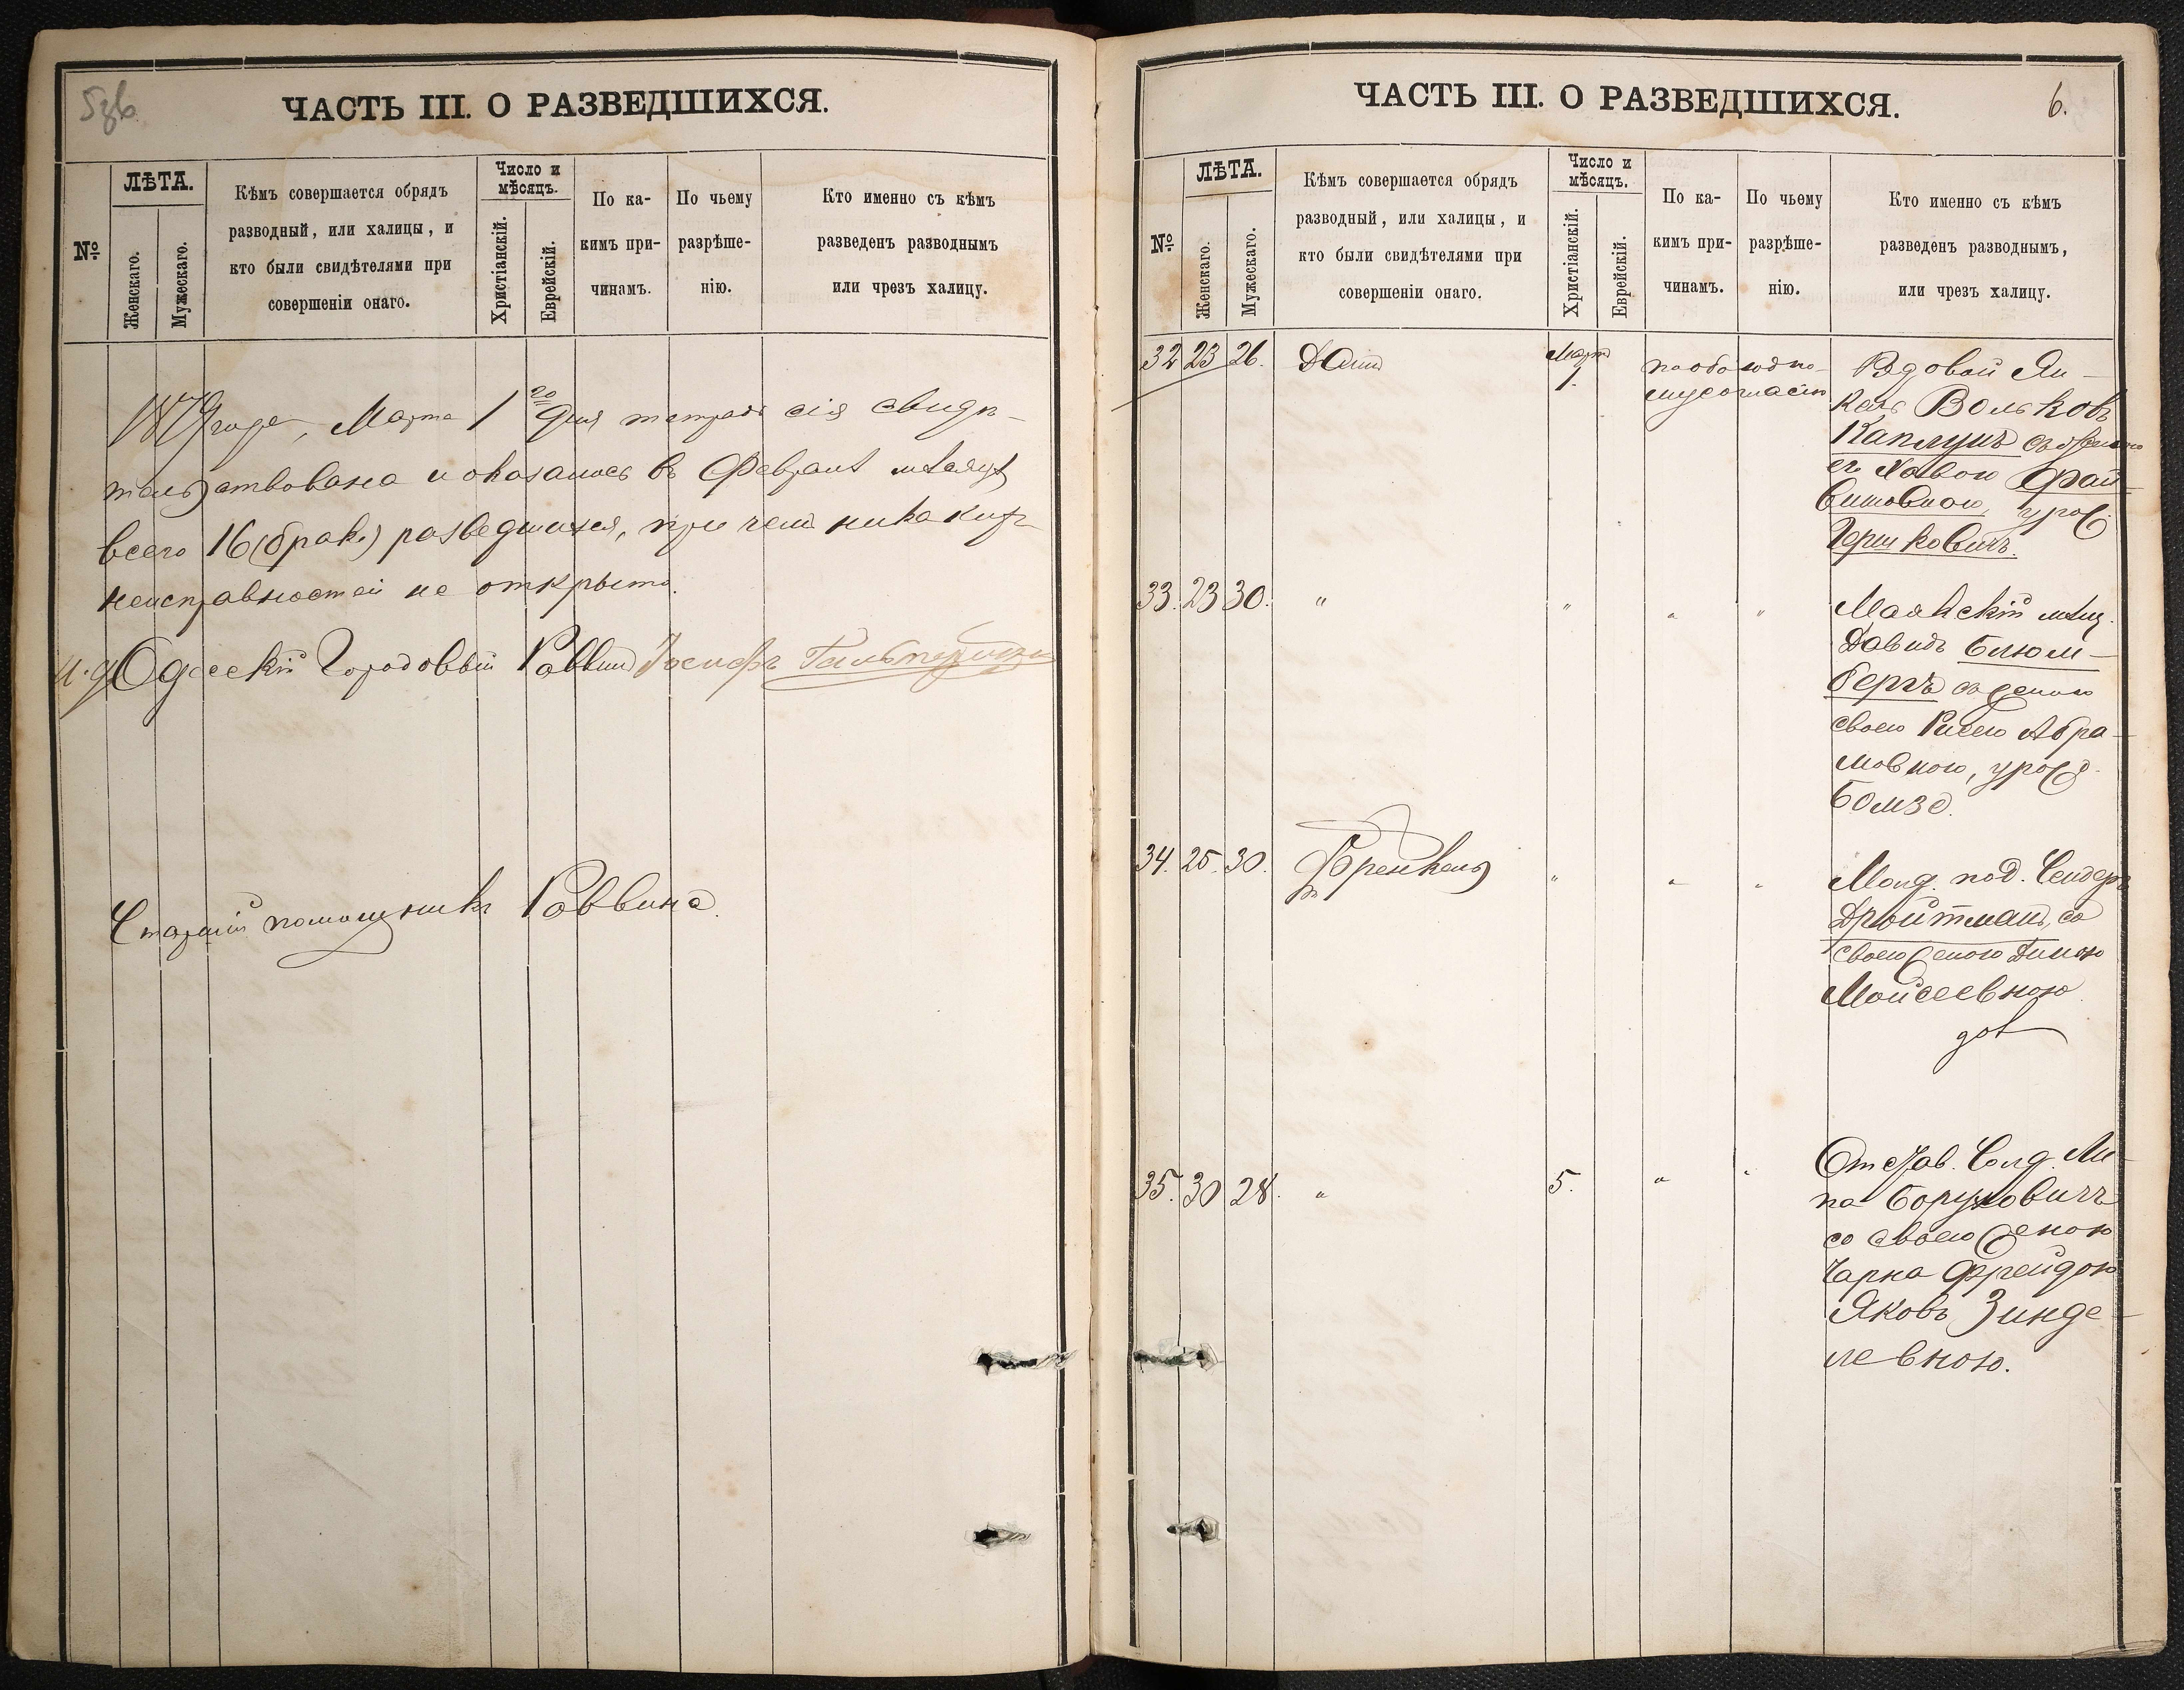 5зв
ЧАСТЬ III. О РАЗВЕДШИХСЯ.
№
ЛѢТА.
Женскаго.
Мужескаго.
Кѣмъ совершается обрядъ
разводный, или халицы, и
кто были свидѣтелями при
совершеніи онаго.
Число и
мѣсяцъ.
Христіанскій.
Еврейскій.
По ка-
кимъ при-
чинамъ.
По чьему
разрѣше-
нію.
Кто именно съ кѣмъ
разведенъ разводнымъ
или чрезъ халицу.
1879 года, Марта 1го дня тетрадь сія свидѣ-
тельствована и оказалось въ Февралѣ мѣсяцѣ
всего 16 (брак.) разведшихся, при чемъ никакихъ
неисправностей не открыто.
И. д. Одесскій Городовый Раввинъ Іосифъ
Старшій помощникъ Раввина.
ЧАСТЬ III. О РАЗВЕДШИХСЯ.
6.
№
ЛѢТА.
Женскаго.
Мужескаго.
Кѣмъ совершается обрядъ
разводный, или халицы, и
кто были свидѣтелями при
совершеніи онаго.
Число и
мѣсяцъ.
Христіанскій.
Еврейскій.
По ка-
кимъ при-
чинамъ.
По чьему
разрѣше-
нію.
Кто именно съ кѣмъ
разведенъ разводнымъ,
или чрезъ халицу.
32 23 26. Март 1. по обоюдно-
му согласію
Рядовой Ян-
кель Вольковъ
Каплунъ съ женою
его Хавою Фай-
вишовною, урож.
Гершковичъ.
33. 23 30. " " " "
Маякскій мѣщ.
Давидъ Блюм-
бергъ съ женою
своею Рисею Абра-
мовною, урожд.
Бомзе.
34. 25. 30. Френкель " " "
Молд. под. Сендеръ
Дройтманъ, со
своею женою Диною
Мойсеевною
35. 30 28. " 5. " "
Отстав. Солд. Ли-
па Боруховичъ
со своею женою
Чарна Фрейдою
Яковъ Зинде-
левною.